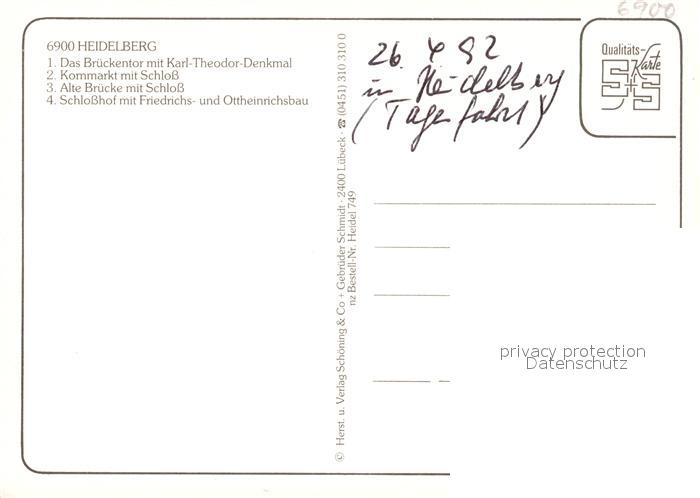 6900
6900 HEIDELBERG
1. Das Brückentor mit Karl-Theodor-Denkmal
2. Kornmarkt mit Schloß
3. Alte Brücke mit Schloß
4. Schloßhof mit Friedrichs- und Ottheinrichsbau
© Herst. u. Verlag Schöning & Co + Gebrüder Schmidt · 2400 Lübeck · ☎ (0451) 310 310 0
nz Bestell-Nr. Heidel 749
26. 4 92
in Heidelberg
(Tagesfahrt)
Qualitäts-
Karte
S+S
privacy protection
Datenschutz